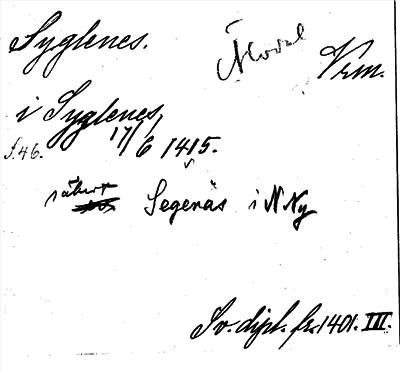 Syglenes.
Älvdal Vrm.
i Syglenes,
S. 46. 17/6 1415.
säkert Segenäs i N Ny
Sv. dipl. fr. 1401. III.